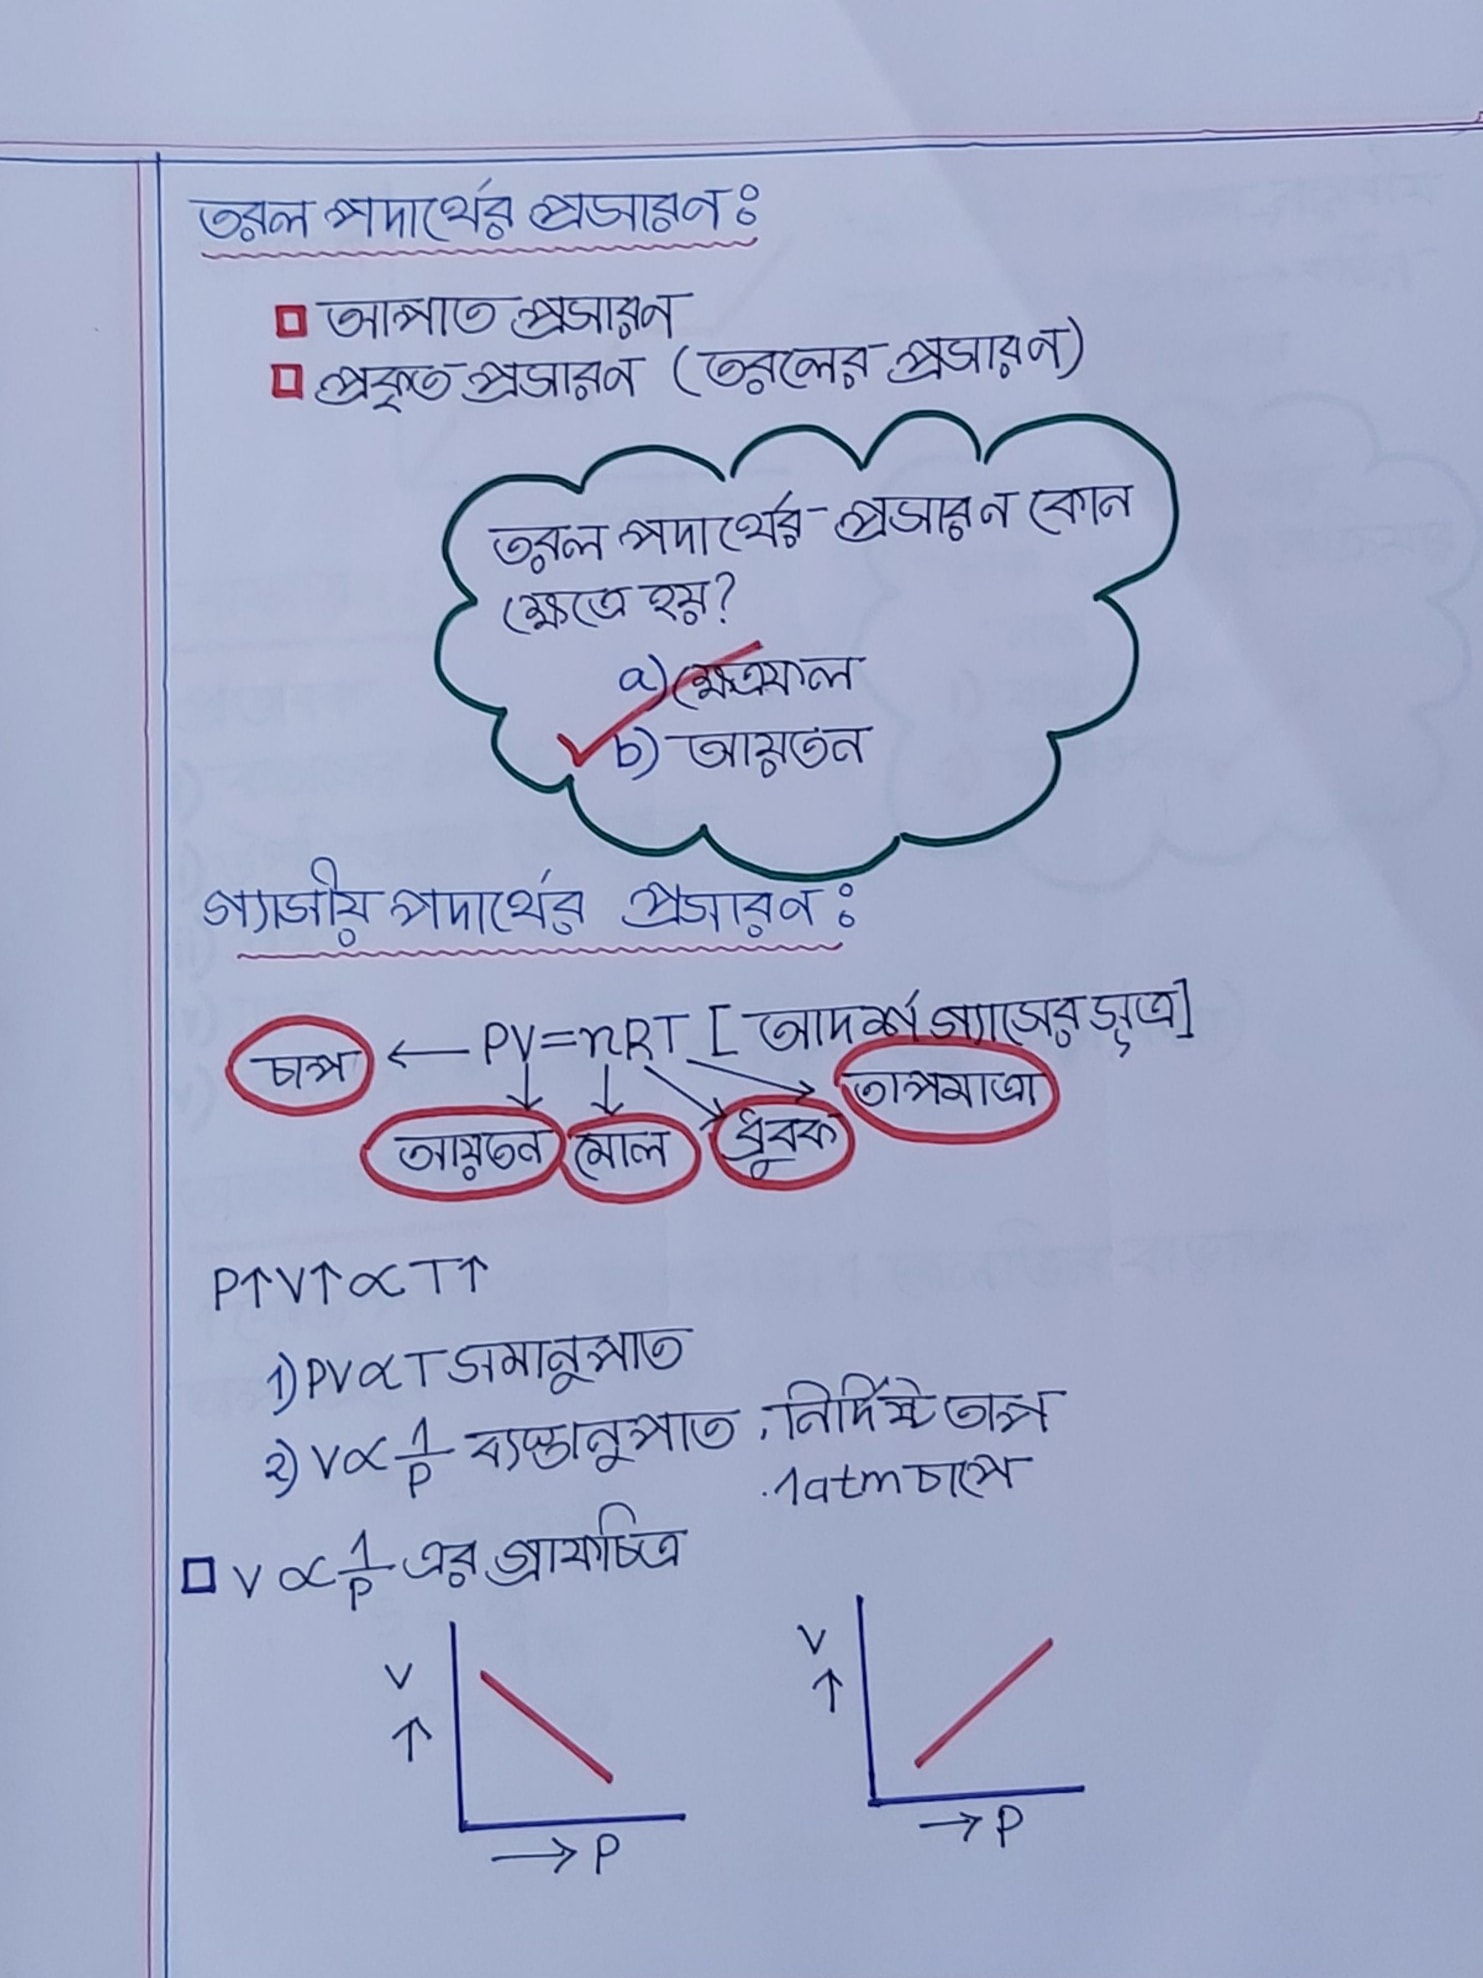 তরল পদার্থের প্রসারন :
আপাত প্রসারন
প্রকৃত প্রসারন (তরলের প্রসারন)
তরল পদার্থের প্রসারন কোন
ক্ষেত্রে হয়?
a) ক্ষেত্রফল
b) আয়তন
গ্যাসীয় পদার্থের প্রসারন :
চাপ ← PV=nRT [আদর্শ গ্যাসের সূত্র]
আয়তন মোল ধ্রুবক তাপমাত্রা
P↑V↑∝T↑
1) PV∝T সমানুপাত
২) V∝1/P ব্যস্তানুপাত , নির্দিষ্ট তাপ
.1atm চাপে
V∝1/P এর গ্রাফচিত্র
V ↑ → P
V ↑ → P